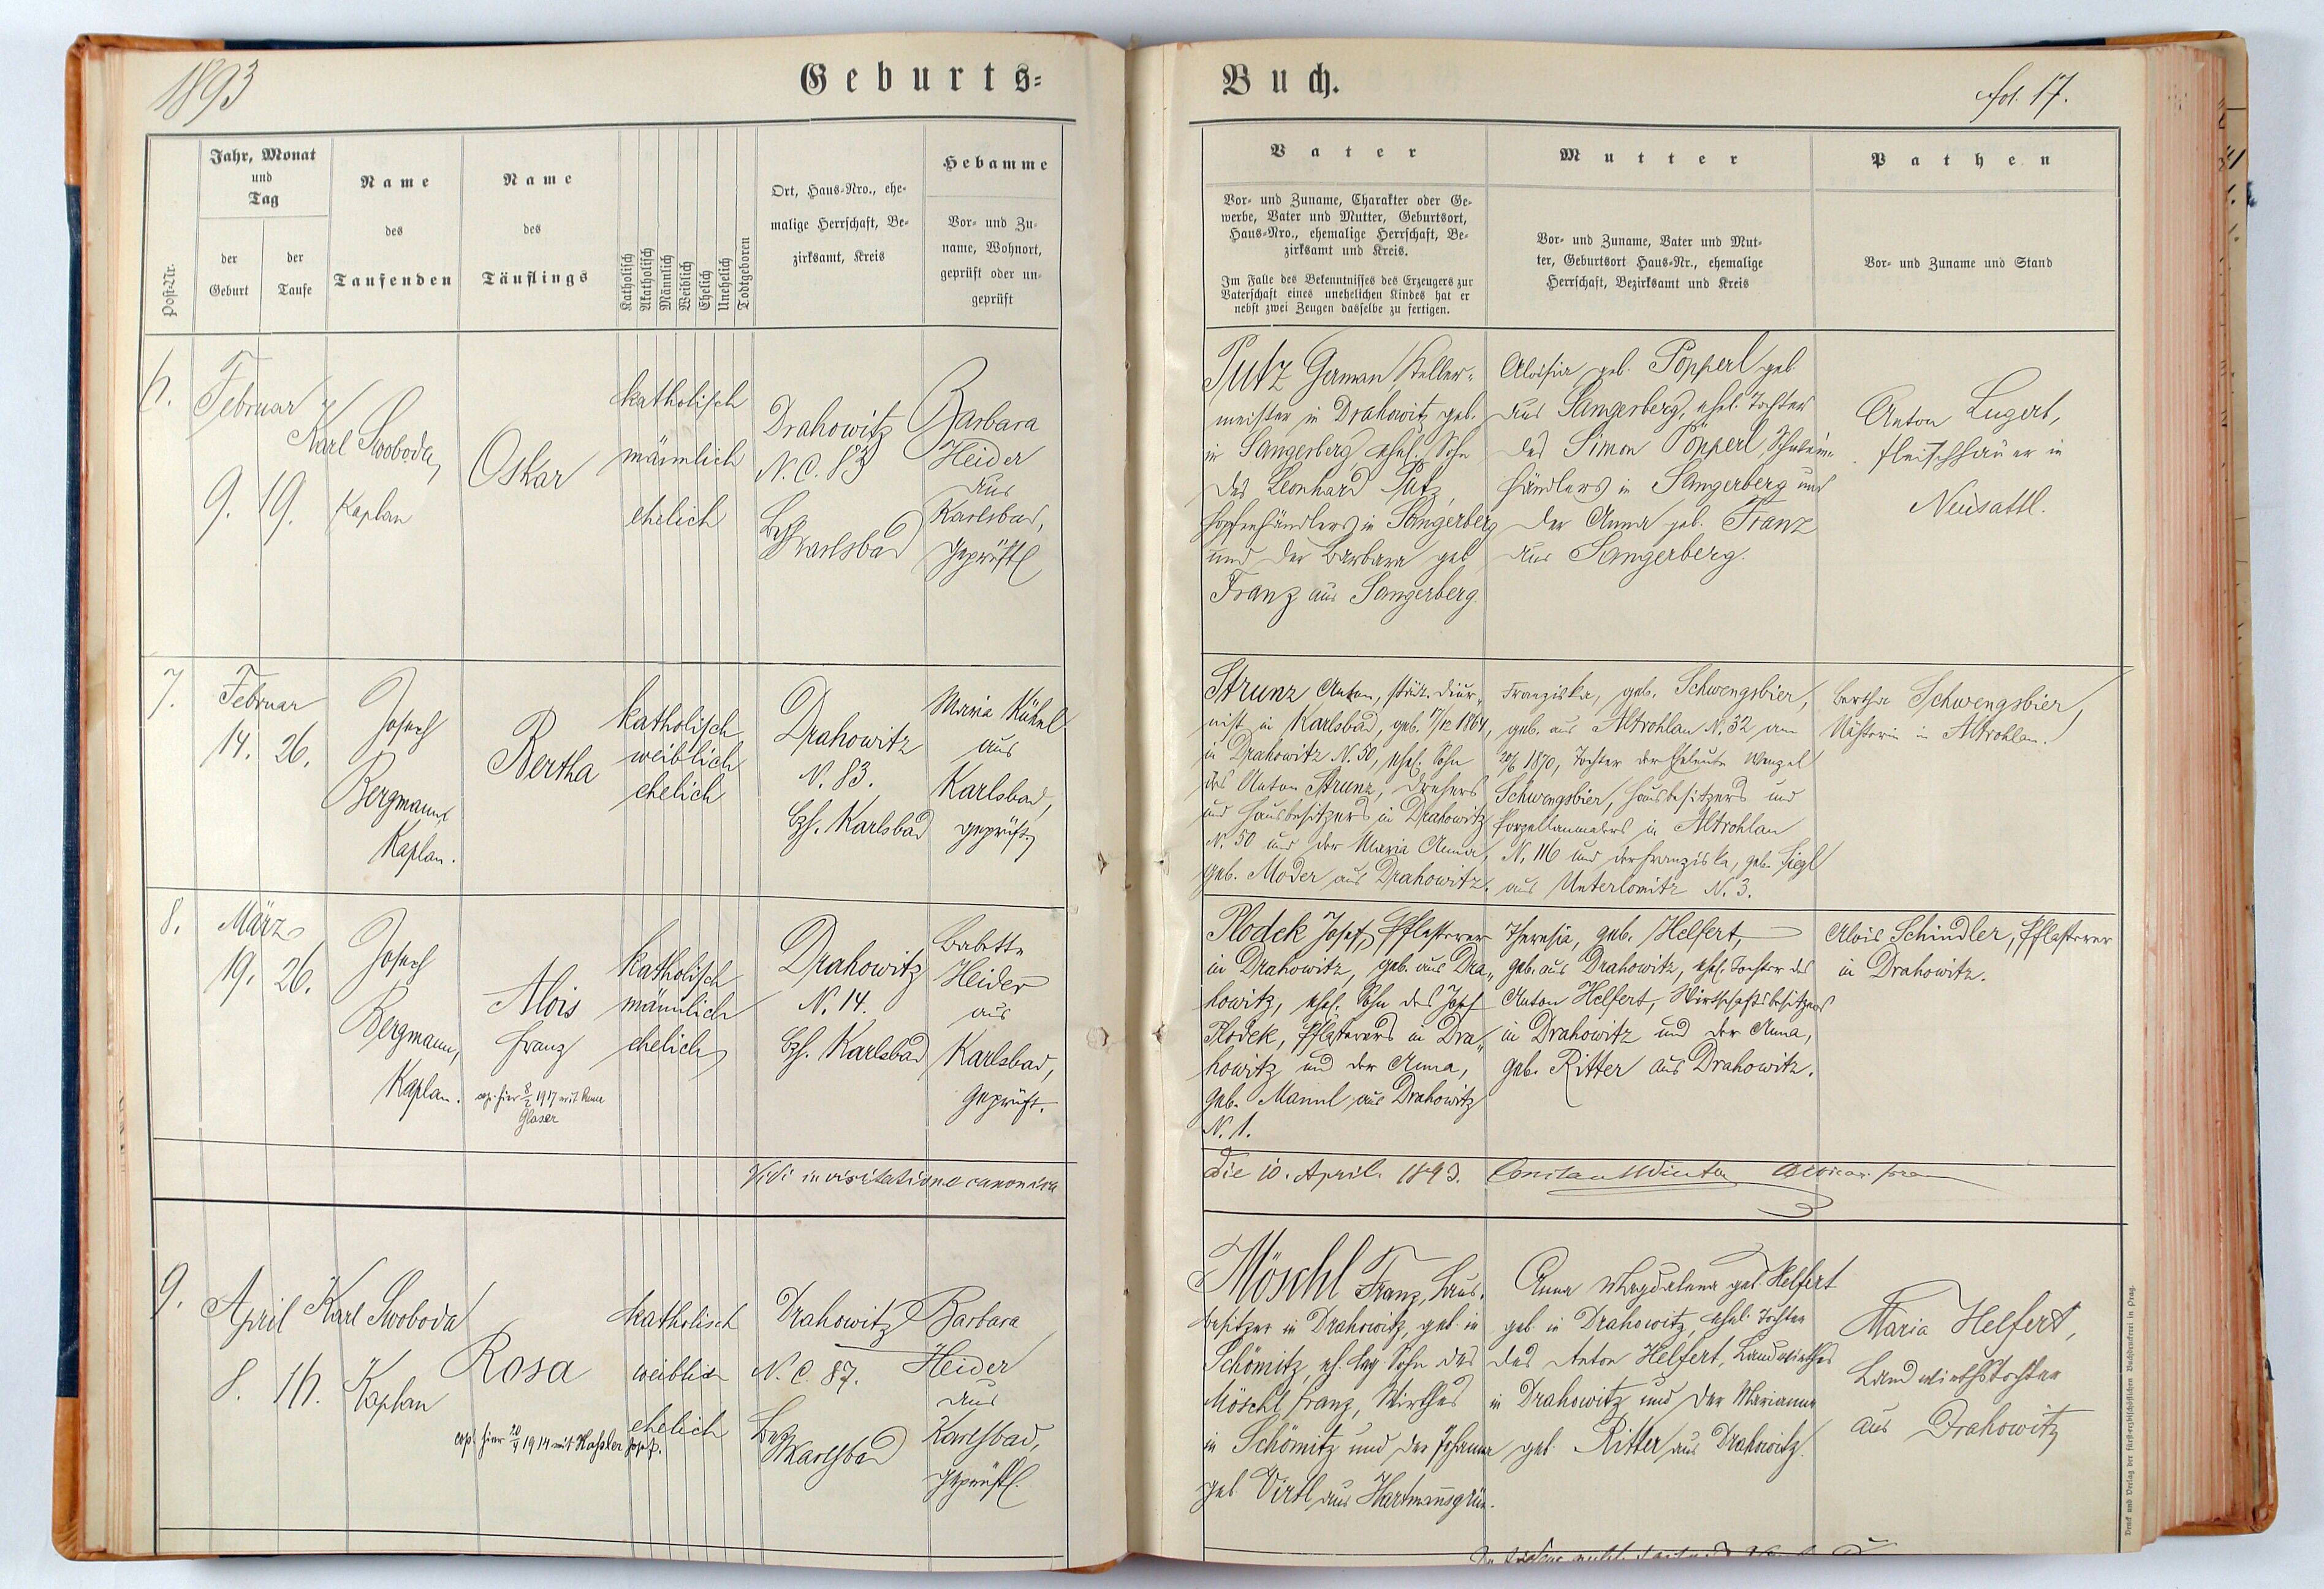 1893
Geburts=
Post-Nr.
Jahr, Monat
und
Tag
der
Geburt
der
Taufe
Name
des
Taufenden
Name
des
Täuflings
Katholisch
Akatholisch
Männlich
Weiblich
Ehelich
Unehelich
Todtgeboren
Ort, Haus-Nro., ehe-
malige Herrschaft, Be-
zirksamt, Kreis
Hebamme
Vor- und Zu-
name, Wohnort,
geprüft oder un-
geprüft
6.
Februar
9. 19.
Karl Swoboda,
Kaplan
Oskar
katholisch
männlich
ehelich
Drahowitz
N.C. 83
Bez. Karlsbad
Barbara
Heider
aus
Karlsbad,
geprüft
7.
Februar
14. 26.
Josef
Bergmann,
Kaplan.
Bertha
katholisch
weiblich
ehelich
Drahowitz
N. 83.
Bzh. Karlsbad
Maria Kühnl
aus
Karlsbad,
geprüft,
8.
März
19. 26.
Josef
Bergmann,
Kaplan.
Alois
Franz
cop. hier 8/2 1917 mit Anna
Glaser
katholisch
männlich
ehelich
Drahowitz
N. 14.
Bzh. Karlsbad
Babette
Heider
aus
Karlsbad,
geprüft.
Vidi in visitatione canonica
9.
April
8. 16.
Karl Swoboda
Kaplan
Rosa
cop. hier 1914 mit Haßler Josef.
katholisch
weiblich
ehelich
Drahowitz
N.C. 87.
Bez. Karlsbad
Barbara
Heider
aus
Karlsbad,
geprüft.
Buch.
fol. 17.
Vater
Vor- und Zuname, Charakter oder Ge-
werbe, Vater und Mutter, Geburtsort,
Haus-Nro., ehemalige Herrschaft, Be-
zirksamt und Kreis.
Im Falle des Bekenntnisses des Erzeugers zur
Vaterschaft eines unehelichen Kindes hat er
nebst zwei Zeugen dasselbe zu fertigen.
Mutter
Vor- und Zuname, Vater und Mut-
ter, Geburtsort Haus-Nr., ehemalige
Herrschaft, Bezirksamt und Kreis
Pathen
Vor- und Zuname und Stand
Putz German, Keller-
meister in Drahowitz, geb.
in Sangerberg, ehel. Sohn
des Leonhard Putz,
Hopfenhändlers in Sangerberg
und der Barbara geb.
Franz aus Sangerberg.
Aloisia geb. Popperl geb
aus Sangerberg, ehel. Tochter
des Simon Popperl, Schwein-
händlers in Sangerberg und
der Anna geb. Franz
aus Sangerberg.
Anton Lugert,
Fleischhauer in
Neusattl.
Strunz Anton, städt. Diur-
nist in Karlsbad, geb. 17/12 1864,
in Drahowitz N. 50, ehel. Sohn
des Anton Strunz, Drehers
und Hausbesitzers in Drahowitz
N. 50 und der Maria Anna,
geb. Moder aus Drahowitz.
Franziska, geb. Schwengsbier,
geb. aus Altrohlau N. 32 am
20/6 1870, Tochter der Eheleute Wenzel
Schwengsbier, Hausbesitzers und
Porzellanmalers in Altrohlau
N. 116 und der Franziska, geb. Siegl
aus Unterlomitz N. 3.
Bertha Schwengsbier,
Näherin in Altrohlau.
Plodek Josef, Pflasterer
in Drahowitz, geb. aus Dra-
howitz, ehel. Sohn des Josef
Plodek, Pflasterers in Dra-
howitz und der Anna,
geb. Mannl aus Drahowitz
N. 1.
Theresia, geb. Helfert,
geb. aus Drahowitz, ehel. Tochter des
Anton Helfert, Wirtschaftsbesitzers
in Drahowitz und der Anna,
geb. Ritter aus Drahowitz.
Alois Schindler, Pflasterer
in Drahowitz.
Die 10. April 1893.
Möschl Franz, Haus-
besitzer in Drahowitz, geb. in
Schömitz, eh. leg. Sohn des
Möschl Franz, Wirthes
in Schömitz und der Johanna
geb. Virtl aus Hartmannsgrün.
Anna Magdalena geb. Helfert
geb. in Drahowitz, ehel. Tochter
des Anton Helfert, Landwirthes
in Drahowitz und der Marianna
geb. Ritter aus Drahowitz.
Maria Helfert,
Landwirthstochter
aus Drahowitz
Druck und Verlag der fürst-erzbischöflichen Buchdruckerei in Prag.